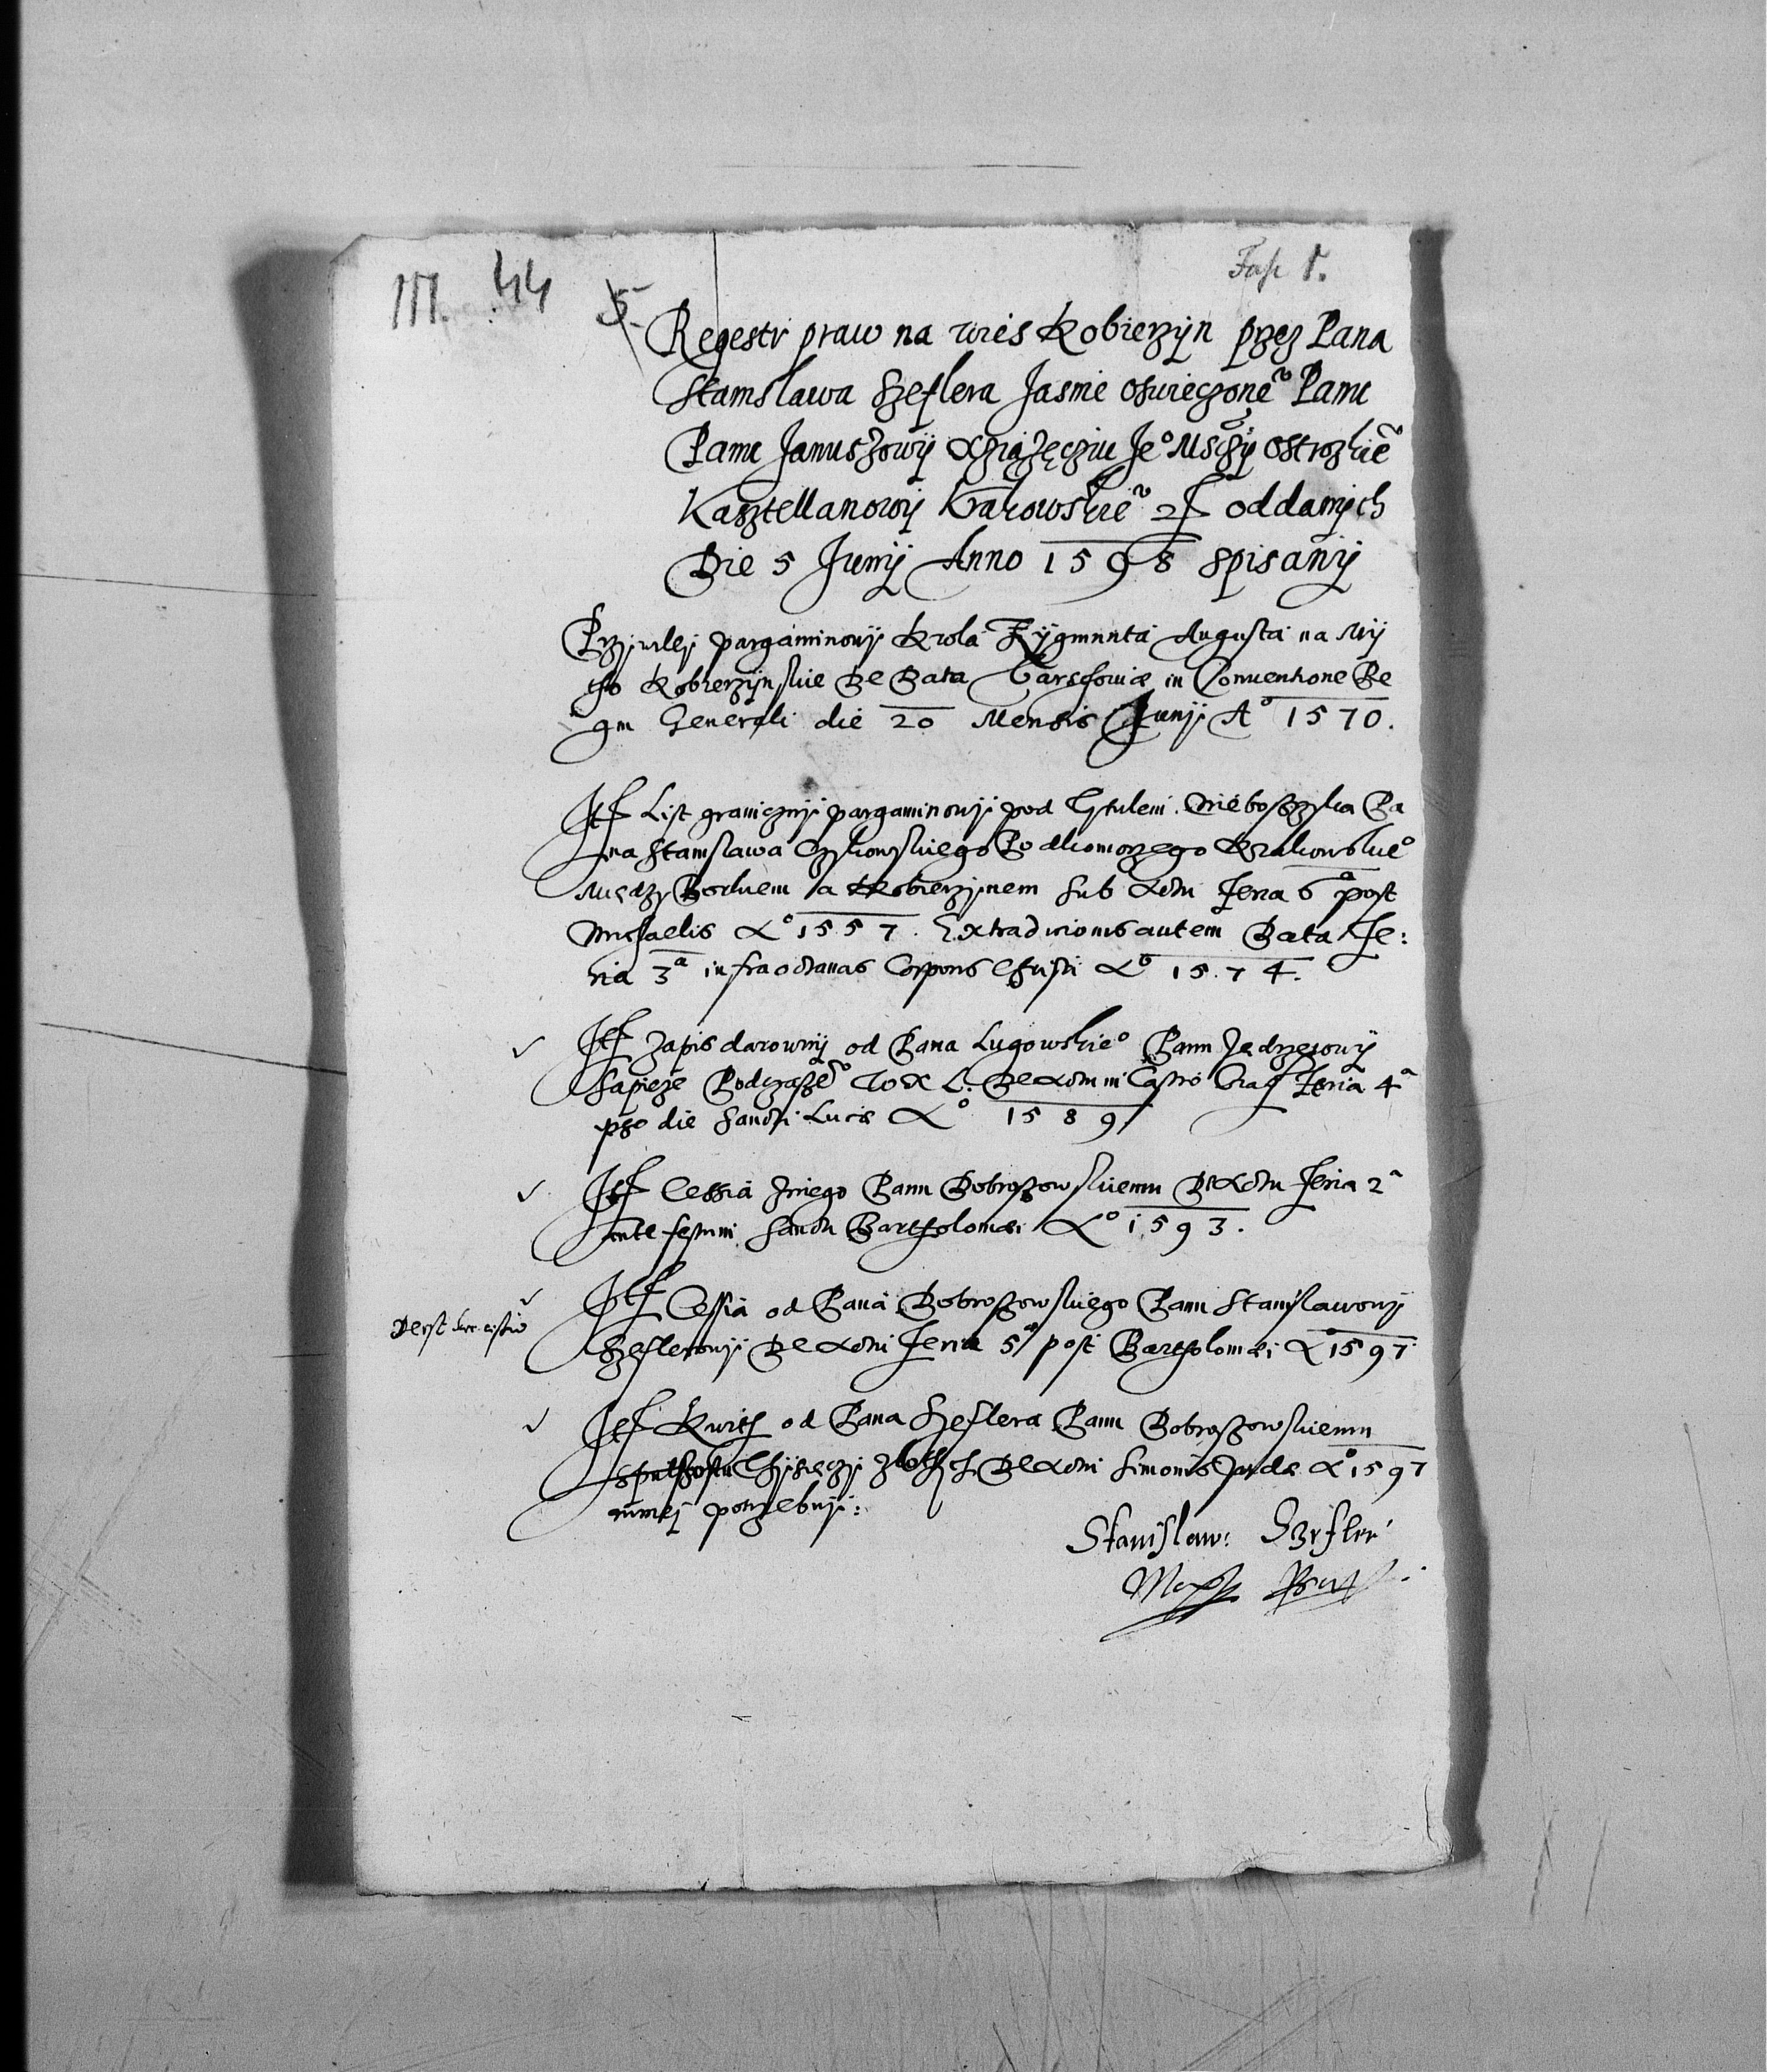 III. 44 5 Fasc 1.
Regestr praw na wies Kobierzÿn przez Pana
Stanislawa Szeflera Jasnie oswieczone° Panu
Panu Janussowÿ Xziązęcziu Je° Msczÿ Ostrozkie°
Kasztellanowÿ Krakowskie° etc oddanÿch
Die 5 Junÿ Anno 1598 spisanÿ
Przÿwilej pargaminowÿ Krola Zÿgmunta Augusta na Mÿ
tho Kobierzÿnskie De Data Varschoviæ in Conventione Re
gni Generali die 20 Mensis Junÿ A° 1570.
Itē List granicznÿ pargaminowÿ pod Tÿtulem Nieboszczyka Pa
na Stanislawa Czykowskiego Podkomorzego Krakowskie°
Miedzy Borkiem a Kobierzynem sub Actu Feria 6ª post
Michaelis A° 1557. Extraditionis autem Data Fe:
ria 3ª infra octavas Corporis Christi A° 15.74.
Itē Zapis darownÿ od Pana Lugowskie° Panu Jędrzejowÿ
Sapieze Podczasze° W X L. De Actu in Castro Crac Feria 4ª
pso die Sancti Lucæ A° 1589
Itē Cessia Jmiego Panu Dobroszowskiemu De Actu Feria 2ª
ante festum Sancti Bartholomæi A° 1593.
Itē Cessia od Pana Dobroszowskiego Panu Stanislawowÿ
Szeflerowÿ De Actu Feria 5ª post Bartholomæi A° 1597
Itē Kwith od Pana Szeflera Panu Dobroszowskiemu
De Actu Simonis Judæ A° 1597
mniej potrzebnÿ:
Stanislaw: Szefler